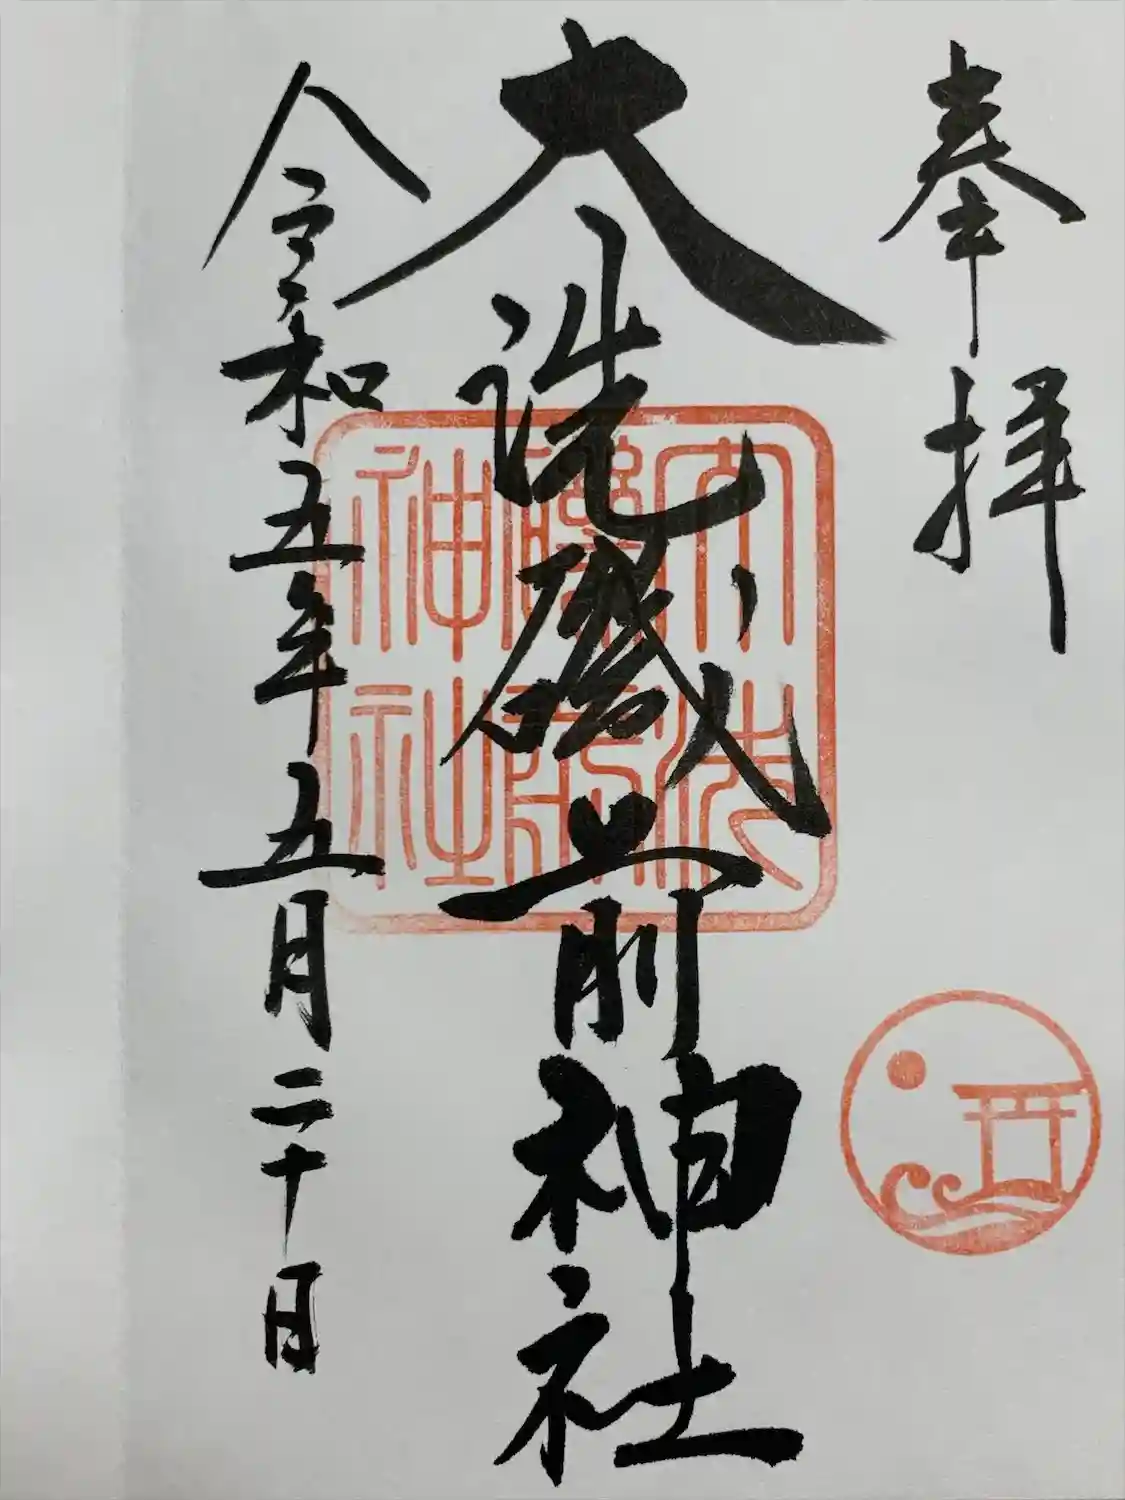 奉拝
大洗磯前神社
大洗磯前神社
令和五年五月二十日